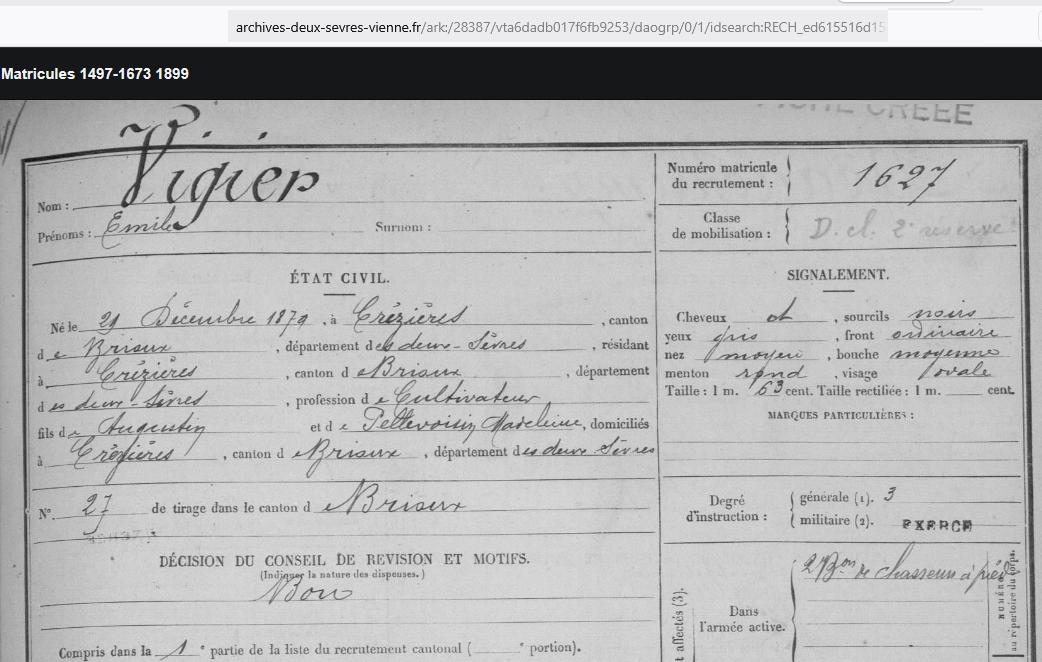 archives-deux-sevres-vienne.fr/ark:/28387/vta6dadb017f6fb9253/daogrp/0/1/idsearch:RECH_ed615516d15
Matricules 1497-1673 1899
FICHE CRÉÉE
Nom : Vigier
Prénoms : Emile Surnom :
Numéro matricule
du recrutement : 1627
Classe
de mobilisation : D. cl. 2e réserve
ÉTAT CIVIL.
Né le 29 Décembre 1879, à Crézières, canton
de Brioux, département des deux-Sèvres, résidant
à Crézières, canton de Brioux, département
des deux-Sèvres, profession de Cultivateur
fils de Augustin et de Pellevoisin Madeleine, domiciliés
à Crézières, canton de Brioux, département des deux Sèvres
N° 27 de tirage dans le canton de Brioux
DÉCISION DU CONSEIL DE REVISION ET MOTIFS.
(Indiquer la nature des dispenses.)
Bon
Compris dans la 1e partie de la liste du recrutement cantonal ( e portion).
SIGNALEMENT.
Cheveux et, sourcils noirs
yeux gris, front ordinaire
nez moyen, bouche moyenne
menton rond, visage ovale
Taille : 1 m. 63 cent. Taille rectifiée : 1 m. cent.
MARQUES PARTICULIÈRES :
Degré
d'instruction :
générale (1). 3
militaire (2). EXERCÉ
t affectés (3).
Dans
l'armée active.
2 Bon de chasseurs à pied
NUMÉRO
au répertoire du corps.